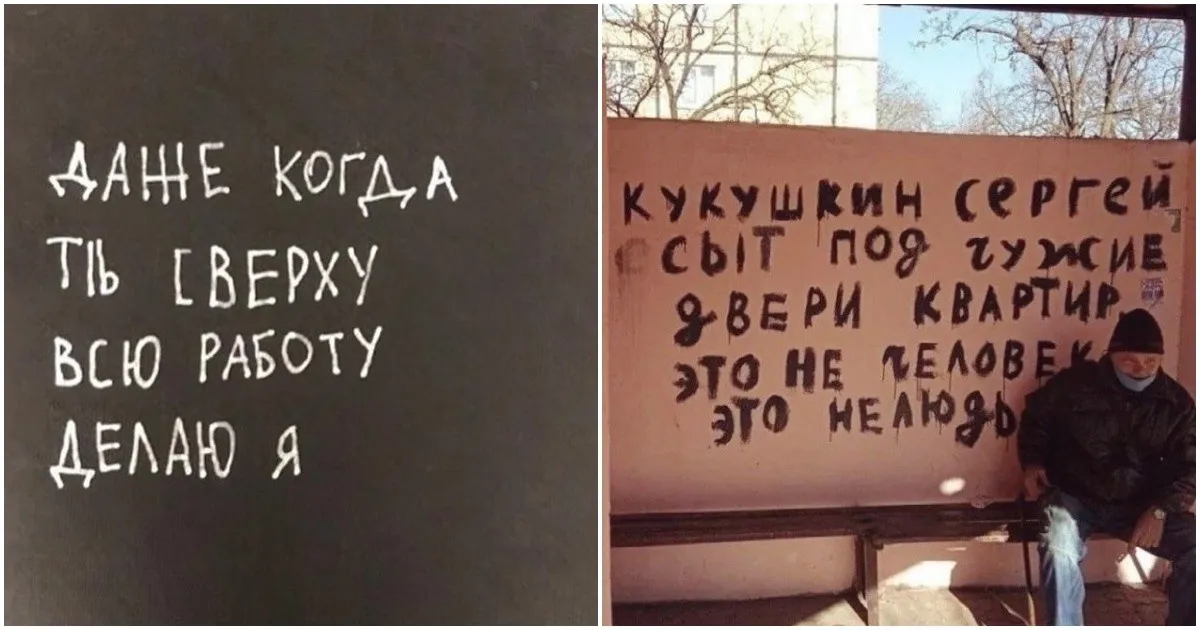 ДАЖЕ КОГДА
ТЫ СВЕРХУ
ВСЮ РАБОТУ
ДЕЛАЮ Я
КУКУШКИН СЕРГЕЙ
ССЫТ ПОД ЧУЖИЕ
ДВЕРИ КВАРТИР
ЭТО НЕ ЧЕЛОВЕК
ЭТО НЕЛЮДЬ